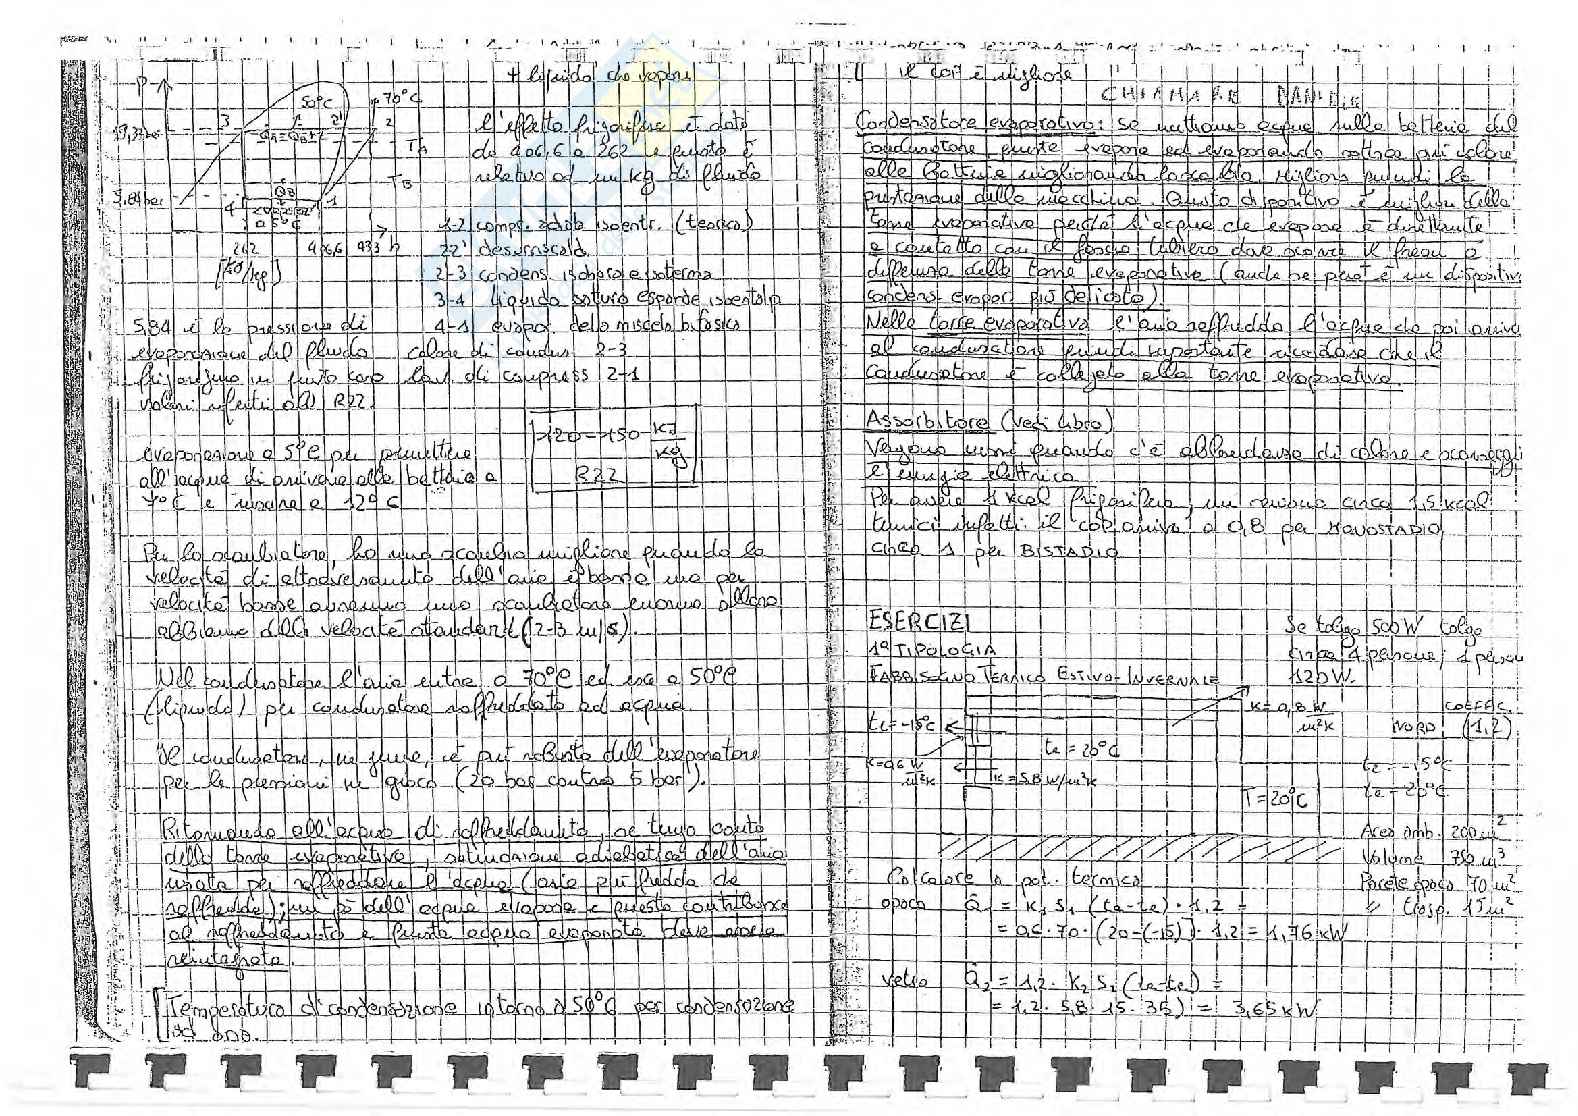 + liquido che vapore
P
50°C
70°C
3
2'
2
19,33 bar
QA = QB + L
TA
TB
5,84 bar
QB
4
1
5°C
262
406,6
433
h
[kJ/kg]
l'effetto frigorifero è dato
da 406,6 a 262 e questo è
relativo ad un kg di fluido
1-2 compr. adiab isoentr. (teorico)
22' desurriscald.
2-3 condens. isobara e isoterma
3-4 liquido saturo espande isoentalp
4-1 evapor. della miscela bifasica
5,84 è la pressione di
evaporazione del fluido
frigorigeno in questo caso
valori riferiti all' R22.
calore di condens 2-3
lav. di compress 2-1
120-150 kJ/kg
R22
evaporazione a 5°C per permettere
all'acqua di arrivare alla batteria a
7°C e uscire a 12°C
Per lo scambiatore, ho uno scambio migliore quando la
velocità di attraversamento dell'aria è bassa ma per
velocità basse avremmo uno scambiatore enorme allora
abbiamo delle velocità standard (2-3 m/s).
Nel condensatore l'aria entra a 70°C ed esce a 50°C
(liquido) per condensatore raffreddato ad acqua.
Il condensatore, in genere, è più robusto dell'evaporatore
per le pressioni in gioco (20 bar contro 5 bar).
Ritornando all'acqua di raffreddamento, se tengo conto
della torre evaporativa, saturazione adiabatica dell'aria
usata per raffreddare l'acqua (aria più fredda che
raffredda); un pò dell'acqua evapora e questo contribuisce
al raffreddamento e questa acqua evaporata deve essere
reintegrata.
Temperatura di condensazione intorno a 50°C per condensazione
ad aria.
il COP è migliore
CHIAMARE DANIELE
Condensatore evaporativo: se mettiamo acqua sulla batteria del
condensatore, questa evapora ed evaporando sottrae più calore
alle batterie migliorando lo scambio. Migliora quindi la
prestazione della macchina. Questo dispositivo è migliore della
torre evaporativa perchè l'acqua che evapora è direttamente
a contatto con il fascio tubiero dove scorre il freon a
differenza della torre evaporativa (anche se però è un dispositivo
condens. evapor. più delicato).
Nella torre evaporativa l'aria raffredda l'acqua che poi arriva
al condensatore quindi importante ricordare che il
condensatore è collegato alla torre evaporativa.
Assorbitore (vedi libro)
Vengono usati quando c'è abbondanza di calore e scarseggia
l'energia elettrica.
Per avere 1 kcal frigorifera, mi servono circa 1,5 kcal
termici infatti il COP arriva a 0,8 per MONOSTADIO
circa 1 per BISTADIO
ESERCIZI
1ª TIPOLOGIA
FABBISOGNO TERMICO ESTIVO-INVERNALE
Se tolgo 500W tolgo
circa 4 persone, 1 persona
120W.
K = 0,8 W/m²K
COEFFIC.
NORD (1,2)
te = -15°C
ta = 20°C
K = 0,6 W/m²K
K = 5,8 W/m²K
te = -15°C
ta = 20°C
T = 20°C
Area amb. 200 m²
Volume 750 m³
Parete opaca 70 m²
" trasp. 15 m²
Calcolare la pot. termica
opaca Q̇1 = K1 S1 (ta-te) · 1,2 =
= 0,6 · 70 · (20-(-15)) · 1,2 = 1,76 kW
vetro Q̇2 = 1,2 · K2 S2 (ta-te) =
= 1,2 · 5,8 · 15 · 35) = 3,65 kW